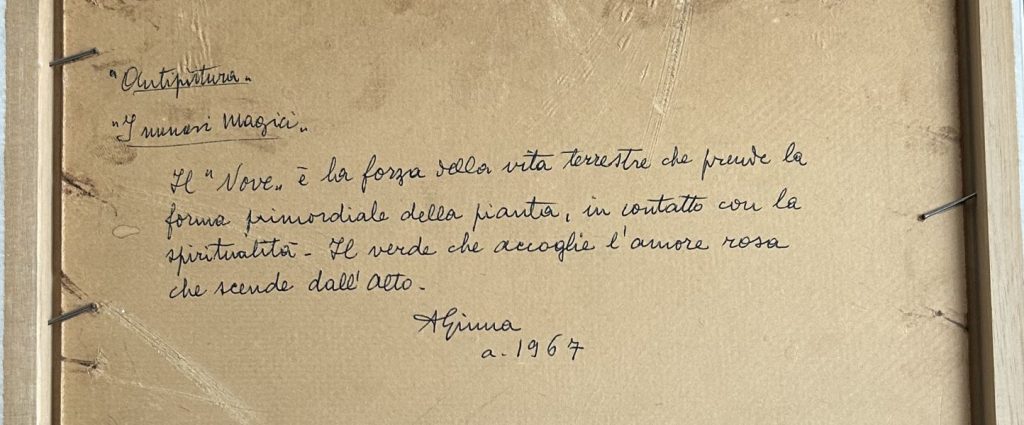 "Antipittura"
"I numeri Magici"
Il "Nove" è la forza della vita terrestre che prende la
forma primordiale della pianta, in contatto con la
spiritualità - Il verde che accoglie l'amore rosa
che scende dall'Alto.
AGinna
a. 1967